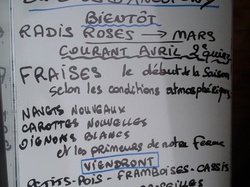 BIENTÔT
RADIS ROSES → MARS
COURANT AVRIL
FRAISES le début de la saison
selon les conditions atmosphériques
NAVETS NOUVEAUX
CAROTTES NOUVELLES
OIGNONS BLANCS
et les primeurs de notre ferme
VIENDRONT
PETITS-POIS - FRAMBOISES - CASSIS
GROSEILLES